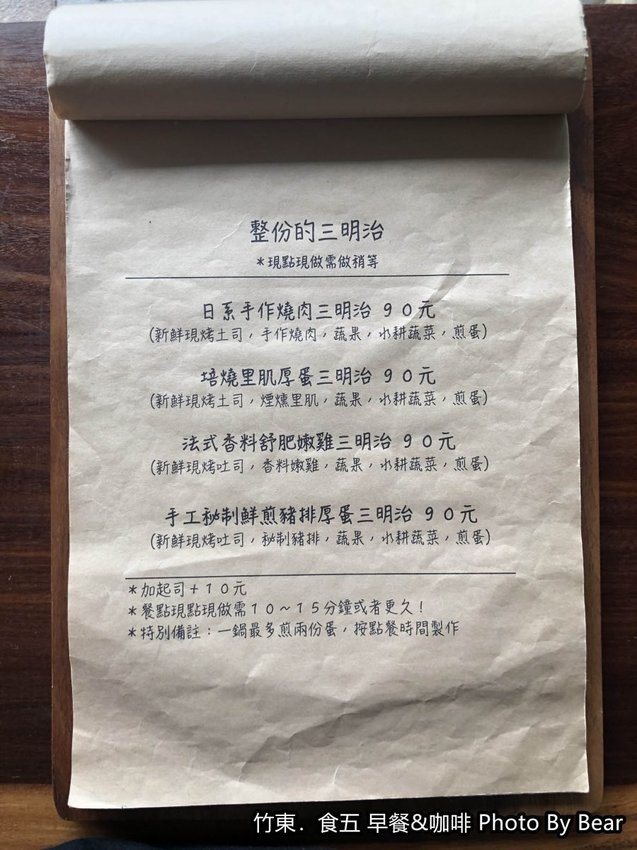 整份的三明治
*現點現做需做稍等
日系手作燒肉三明治 90元
(新鮮現烤土司，手作燒肉，蔬果，水耕蔬菜，煎蛋)
培燒里肌厚蛋三明治 90元
(新鮮現烤土司，煙燻里肌，蔬果，水耕蔬菜，煎蛋)
法式香料舒肥嫩雞三明治 90元
(新鮮現烤吐司，香料嫩雞，蔬果，水耕蔬菜，煎蛋)
手工秘制鮮煎豬排厚蛋三明治 90元
(新鮮現烤吐司，秘制豬排，蔬果，水耕蔬菜，煎蛋)
*加起司+10元
*餐點現點現做需10~15分鐘或者更久!
*特別備註：一鍋最多煎兩份蛋，按點餐時間製作
竹東．食五 早餐&咖啡 Photo By Bear